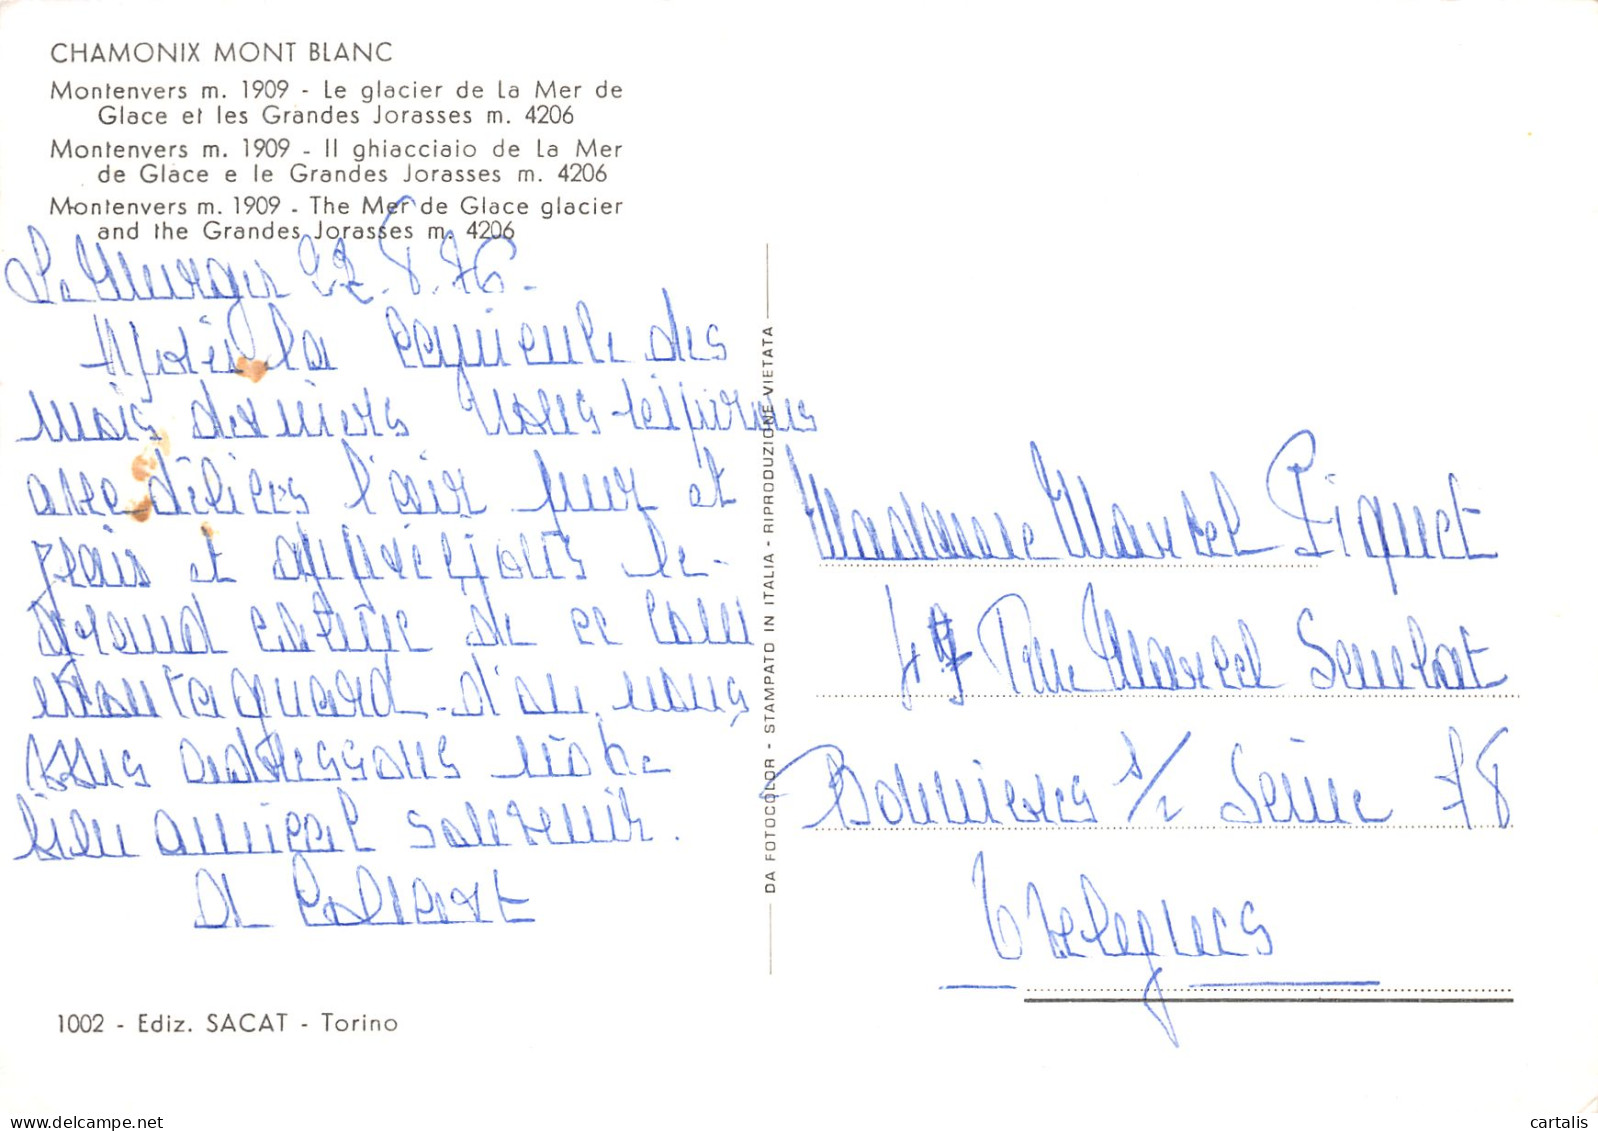 CHAMONIX MONT BLANC
Montenvers m. 1909 - Le glacier de La Mer de
Glace et les Grandes Jorasses m. 4206
Montenvers m. 1909 - Il ghiacciaio de La Mer
de Glace e le Grandes Jorasses m. 4206
Montenvers m. 1909 - The Mer de Glace glacier
and the Grandes Jorasses m. 4206
22.8.76.
Après la canicule des
mois derniers nous respirons
avec délices l'air pur et
frais et apprécions le
grand calme de ce coin
montagnard d'où nous
vous adressons notre
bien amical souvenir.
DA FOTOCOLOR - STAMPATO IN ITALIA - RIPRODUZIONE VIETATA
Madame Marcel Piquet
47 Rue Marcel Sembat
Bonnières s/ Seine 78
Yvelynes
1002 - Ediz. SACAT - Torino
cartalis